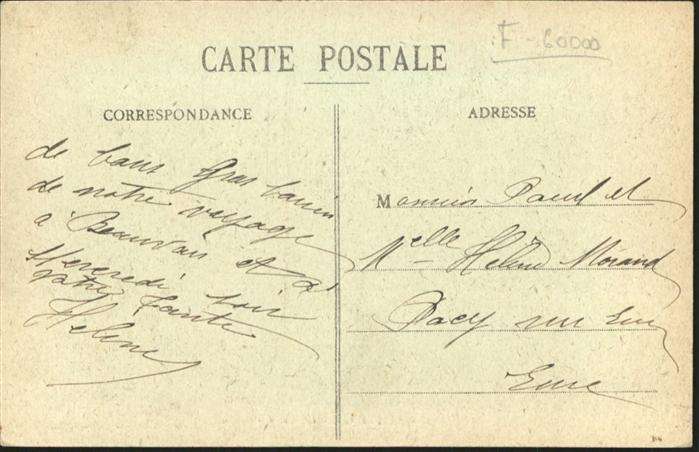 F-60000
CARTE POSTALE
CORRESPONDANCE
ADRESSE
de bons gros
de notre voyage
à Beauvais et à
Mercredi soir
votre tante
Helene
Monsieur Paul et
Melle Hélène Morand
Pacy sur Eure
Eure